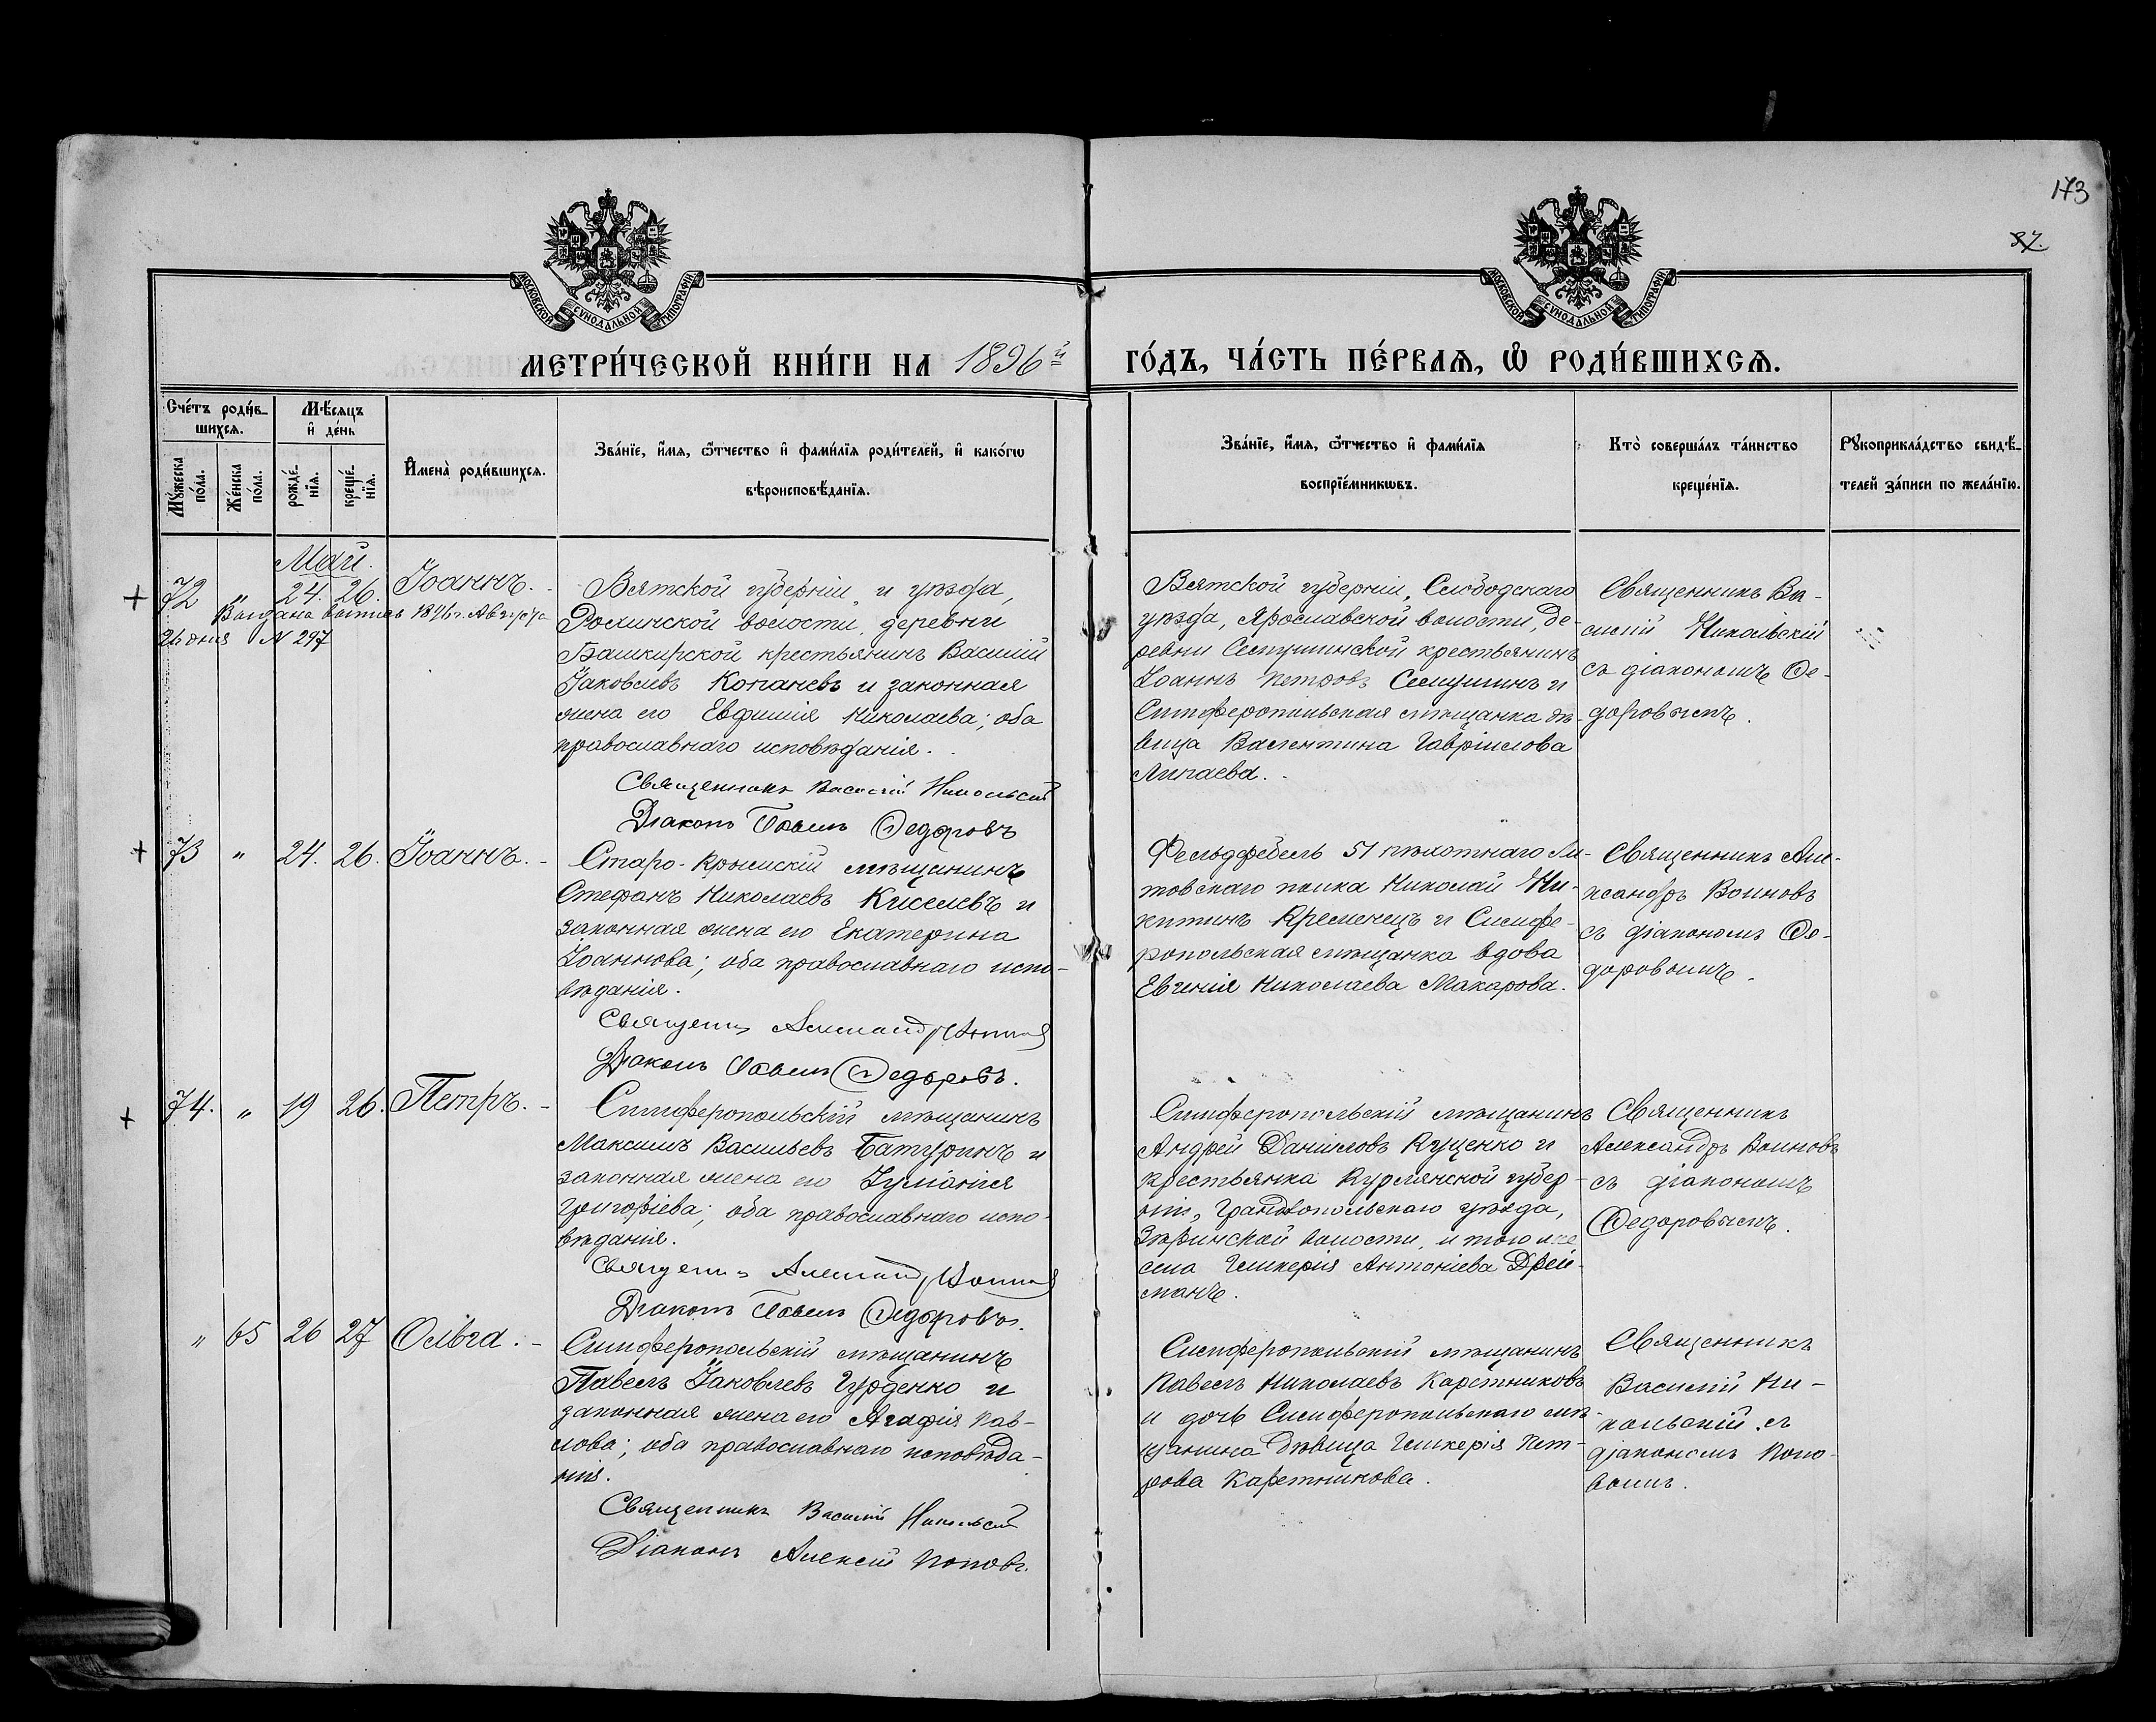 173
37.
МОСКОВСКОЙ СѴНОДАЛЬНОЙ ТИПОГРАФІИ
МОСКОВСКОЙ СѴНОДАЛЬНОЙ ТИПОГРАФІИ
МЕТРИ́ЧЕСКОЙ КНИ́ГИ НА 1896й ГО́ДЪ, ЧА́СТЬ ПЕ́РВАѦ, Ѽ РОДИ́ВШИХСѦ.
Сче́тъ роди́в-
шихсѧ.
Мѣ́сѧцъ
и҆ де́нь
Мꙋ́жеска
по́ла.
Же́нска
по́ла.
рожде́-
нїѧ.
креще́-
нїѧ.
И҆мена̀ роди́вшихсѧ.
Зва́нїе, и҆́мѧ, ѻ҆́тчество и҆ фами́лїѧ роди́телей, и҆ како́гѡ
вѣроисповѣ́данїѧ.
Зва́нїе, и҆́мѧ, ѻ҆́тчество и҆ фами́лїѧ
воспрїе́мникѡвъ.
Кто̀ соверша́лъ та́инство
креще́нїѧ.
Рꙋкоприкла́дство свидѣ́-
телей за́писи по жела́нїю.
Май.
+ 72 " 24. 26. Іоаннъ. -
Выдана выпись 1896 г. Августа
26 дня N 297
Вятской губерніи и уѣзда,
волости, деревни
Башкирской крестьянинъ Василій
Іаковлевъ Копаневъ и законная
жена его Евфимія Николаева; оба
православнаго исповѣданія.
Священникъ Василій Никольскій
Діаконъ Павелъ Федоровъ
Вятской губерніи, Слободскаго
уѣзда, Ярославской волости, де-
ревни крестьянинъ
Іоаннъ Петровъ и
Симферопольская мѣщанка дѣ-
вица Валентина Гавріилова
Липаева.
Священникъ Ва-
силій Никольскій
съ діакономъ Фе-
доровымъ.
+ 73 " 24. 26. Іоаннъ. -
Старо-Крымскій мѣщанинъ
Стефанъ Николаевъ Киселевъ и
законная жена его Екатерина
Іоаннова; оба православнаго испо-
вѣданія.
Священникъ Александръ Воиновъ
Діаконъ Павелъ Федоровъ.
Фельдфебель 51 пѣхотнаго Ли-
товскаго полка Николай Ни-
китинъ Кременецъ и Симфе-
ропольская мѣщанка вдова
Евгенія Николаева Макарова.
Священникъ Але-
ксандръ Воиновъ
съ діакономъ Фе-
доровымъ.
+ 74. " 19 26. Петръ. -
Симферопольскій мѣщанинъ
Максимъ Васильевъ Батуринъ и
законная жена его Іуліанія
Григоріева; оба православнаго испо-
вѣданія.
Священникъ Александръ Воиновъ
Діаконъ Павелъ Федоровъ.
Симферопольскій мѣщанинъ
Андрей Даниловъ Куценко и
крестьянка Курляндской губер-
ніи, уѣзда,
волости, и того же
села Гликерія Антоніева Дрей-
манъ.
Священникъ
Александръ Воиновъ
съ діакономъ
Федоровымъ.
" 65 26 27 Ольга. -
Симферопольскій мѣщанинъ
Павелъ Іаковлевъ Гурденко и
законная жена его Агафія Пав-
лова; оба православнаго исповѣда-
нія.
Священникъ Василій Никольскій
Діаконъ Алексій Поповъ.
Симферопольскій мѣщанинъ
Павелъ Николаевъ Каретниковъ
и дочь Симферопольскаго мѣ-
щанина дѣвица Гликерія Пет-
рова Каретникова.
Священникъ
Василій Ни-
кольскій съ
діакономъ Попо-
вымъ.